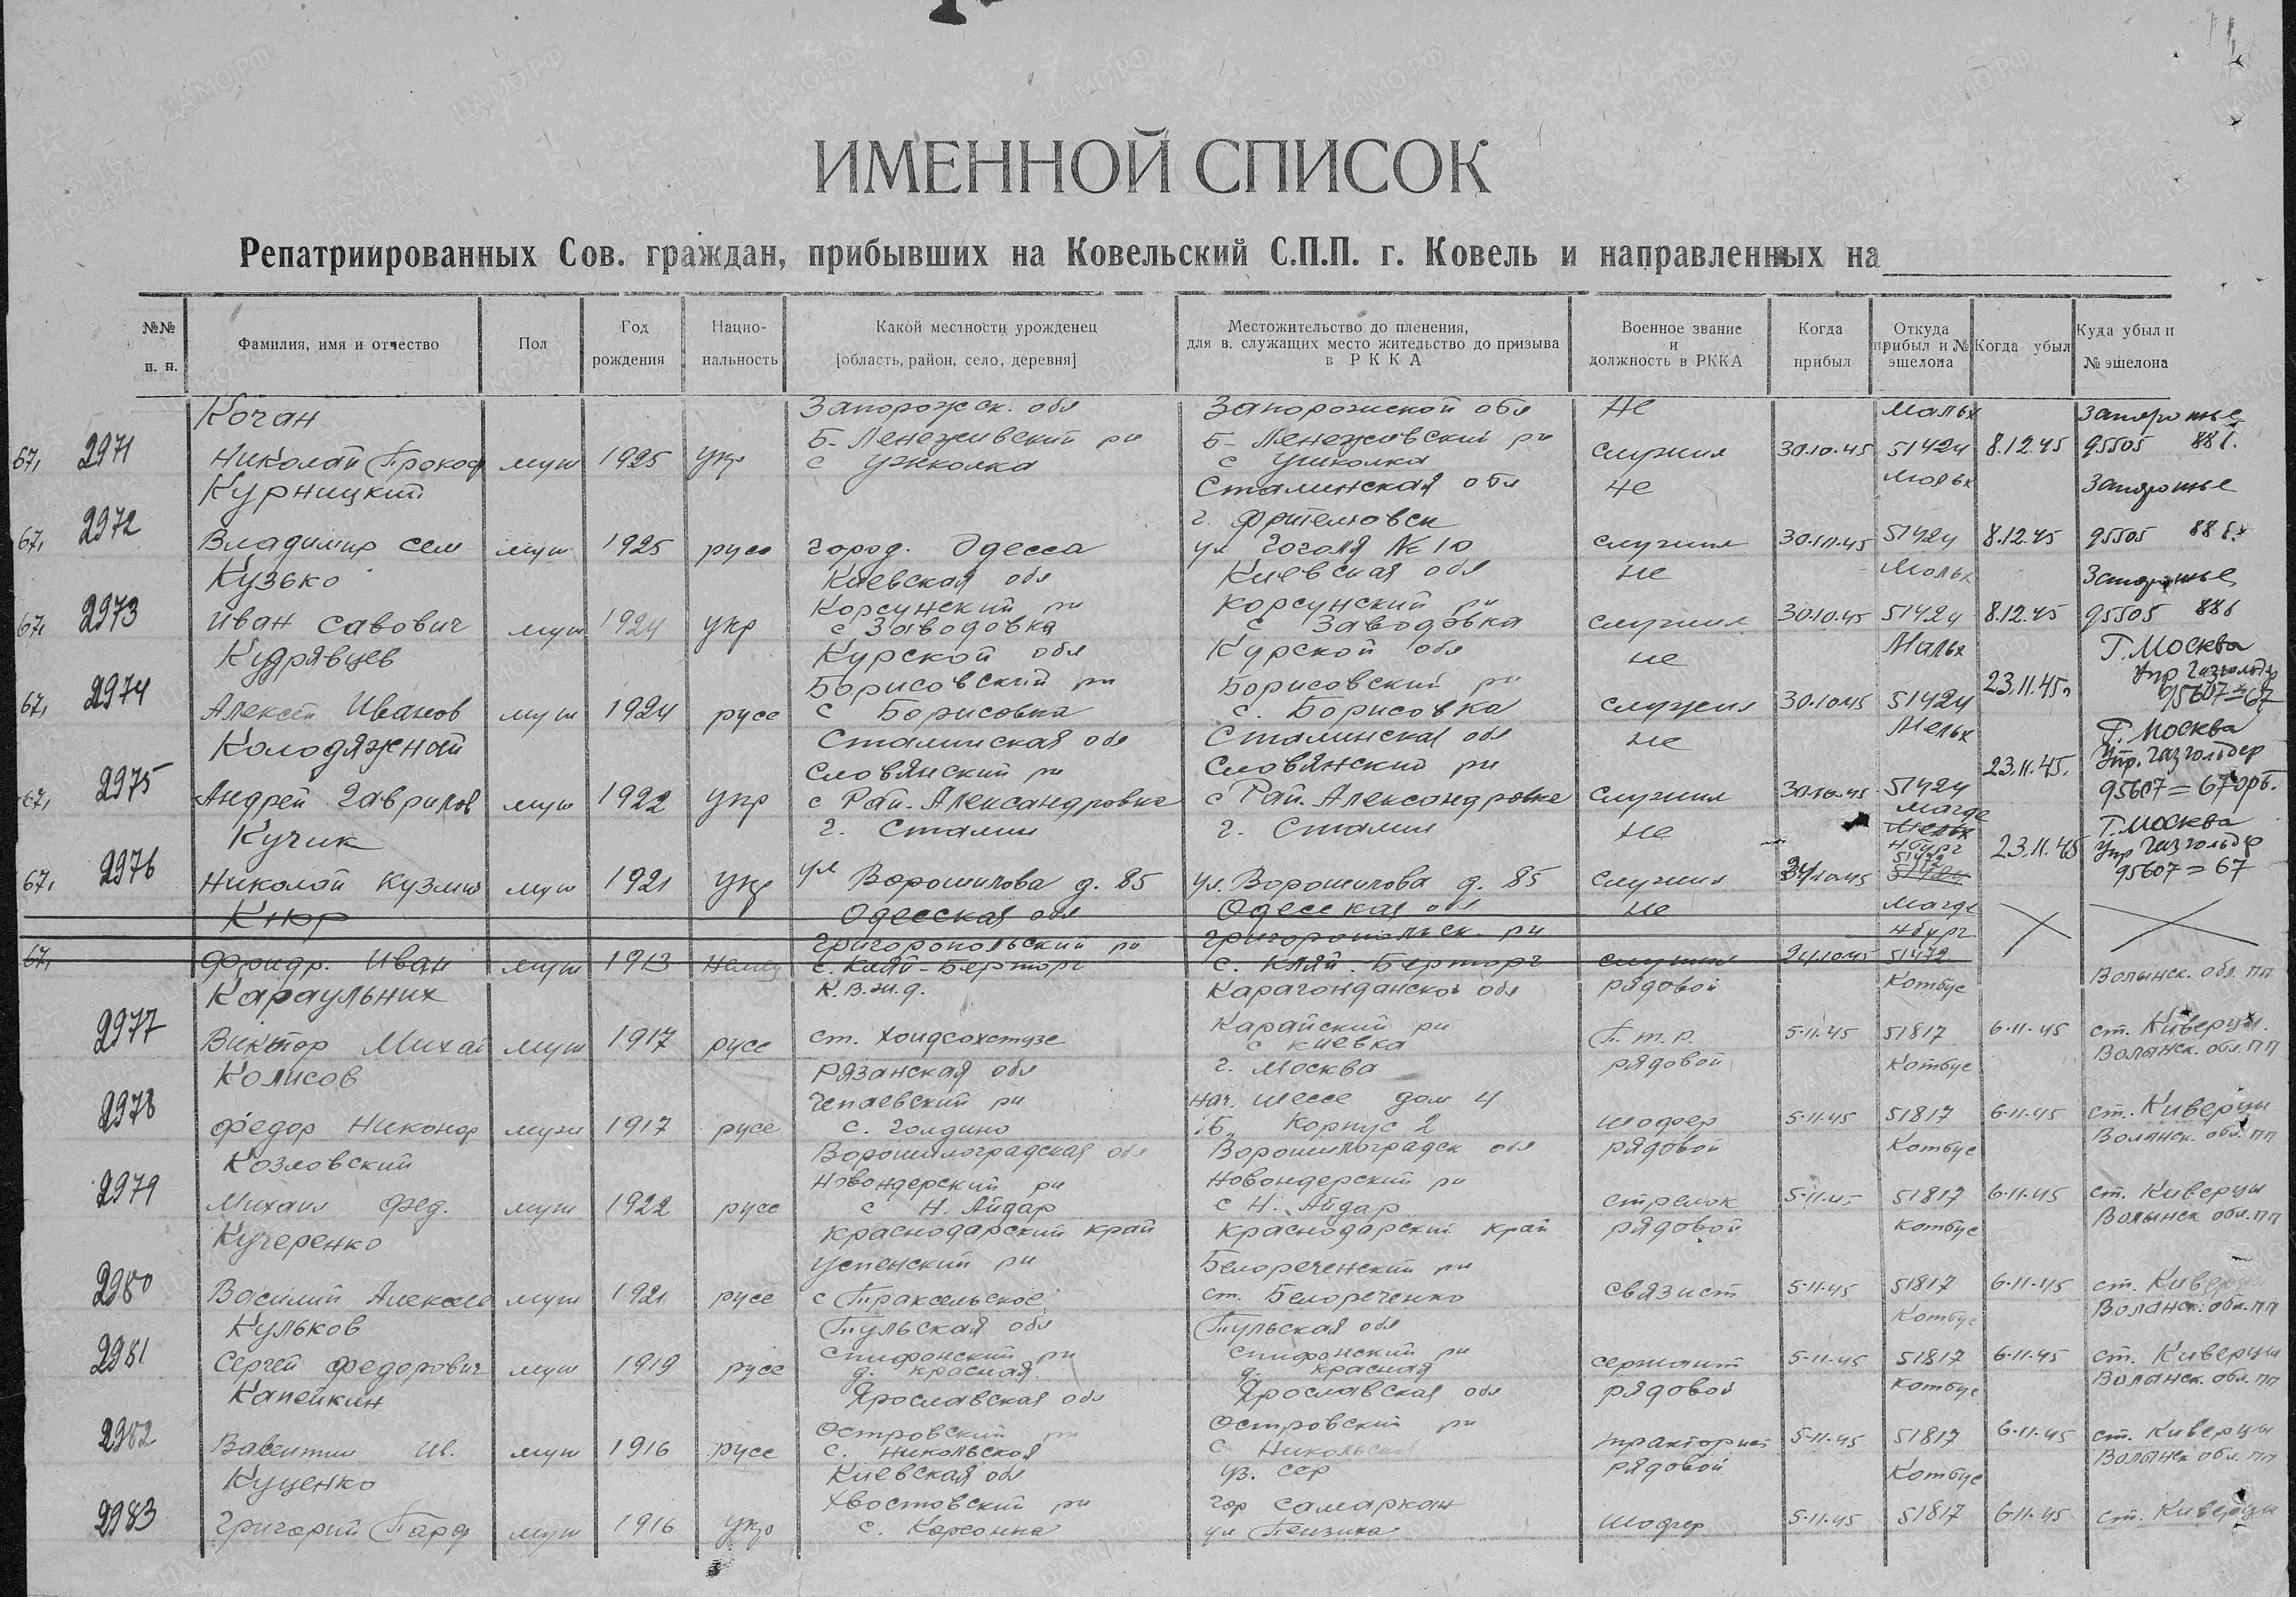 ИМЕННОЙ СПИСОК
Репатриированных Сов. граждан, прибывших на Ковельский С.П.П. г. Ковель и направленных на
№№ п. п.
Фамилия, имя и отчество
Пол
Год рождения
Нацио- нальность
Какой местности урожденец [область, район, село, деревня]
Местожительство до пленения, для в. служащих место жительство до призыва в РККА
Военное звание и должность в РККА
Когда прибыл
Откуда прибыл и № эшелона
Когда убыл
Куда убыл и № эшелона
Кочан Запорожск. обл Запорожской обл Не Мальх Запорожье
67, 2971 Николай Прокоф муж 1925 укр с Ушколка с Ушколка служил 30.10.45 51424 8.12.45 95505 881.
Курницкий Сталинская обл Не Мальх Запорожье
67, 2972 Владимир Сем муж 1925 русс город. Одесса ул Гоголя № 10 служил 51424 8.12.45 95505
Кузько Киевская обл Киевская обл не Мальх Запорожье
Корсунский рн Корсунский рн
67, 2973 Иван Савович муж 1924 укр с Заводовка с Заводовка служил 30.10.45 51424 8.12.45 95505
Кудрявцев Курской обл Курской обл не Мальх Г. Москва
Борисовский рн Борисовский рн Упр Газгольдер
67, 2974 Алексей Иванов муж 1924 русс с Борисовка с. Борисовка служил 30.10.45 51424 23.11.45 95607=67
Колодяжный Сталинская обл Сталинская обл не Мальх Г. Москва
Словянский рн Словянский рн Упр. Газгольдер
67, 2975 Андрей Гаврилов муж 1922 укр с Рай. Александровка с Рай. Александровка служил 30.10.45 51424 23.11.45. 95607=67
Кучик г. Сталин г. Сталин не Магде Нбург Г. Москва
Упр Газгольдер
67, 2976 Николай Кузмич муж 1921 укр ул Ворошилова д. 85 ул. Ворошилова д. 85 служил 24.10.45 51472 23.11.45 95607=67
Кнор Одесская обл Одесская обл не Магде
Григоропольский рн Григоропольск. рн Нбург
67, Фридр. Иван муж 1913 немец 24.10.45 51472
Караульних К.В.ж.д. рядовой Котбус Волынск. обл. пп
2977 Виктор Михай муж 1917 русс ст. с Киевка П.т.р. 5.11.45 51817 6.11.45 ст. Киверцы
Колисов Рязанская обл г. Москва рядовой Котбус Волынск. обл. пп
Чепаевский рн шессе дом 4
2978 Федор Никонор муж 1917 русс с. Голдино Корпус 2 шофер 5.11.45 51817 6.11.45 ст. Киверцы
Козловский Ворошилоградская обл Ворошилоградск обл рядовой Котбус Волынск. обл. пп
2979 Михаил Фед. муж 1922 русс с Н. Айдар с Н. Айдар стрелок 5.11.45 51817 6.11.45 ст. Киверцы
Кучеренко Краснодарский край Краснодарский край рядовой Котбус Волынск обл. пп
Успенский рн Белореченский рн
2980 Василий Алексее муж 1921 русс ст. Белореченко связист 5.11.45 51817 6.11.45 ст. Киверцы
Кульков Тульская обл Тульская обл Котбус Волынск. обл. пп
2981 Сергей Федорович муж 1919 русс д. Красная д. Красная сержант 5.11.45 51817 6.11.45 ст. Киверцы
Капейкин Ярославская обл Ярославская обл рядовой Котбус Волынск. обл. пп
Островский рн Островский рн
2982 Валентин Ив. муж 1916 русс с. Никольская с Никольская тракторист 5.11.45 51817 6.11.45 ст. Киверцы
Куценко Киевская обл Уз. сср рядовой Котбус Волынск обл. пп
Хвостовский рн гор Самаркан
2983 Григорий Парф муж 1916 укр шофер 5.11.45 51817 6.11.45 ст. Киверцы